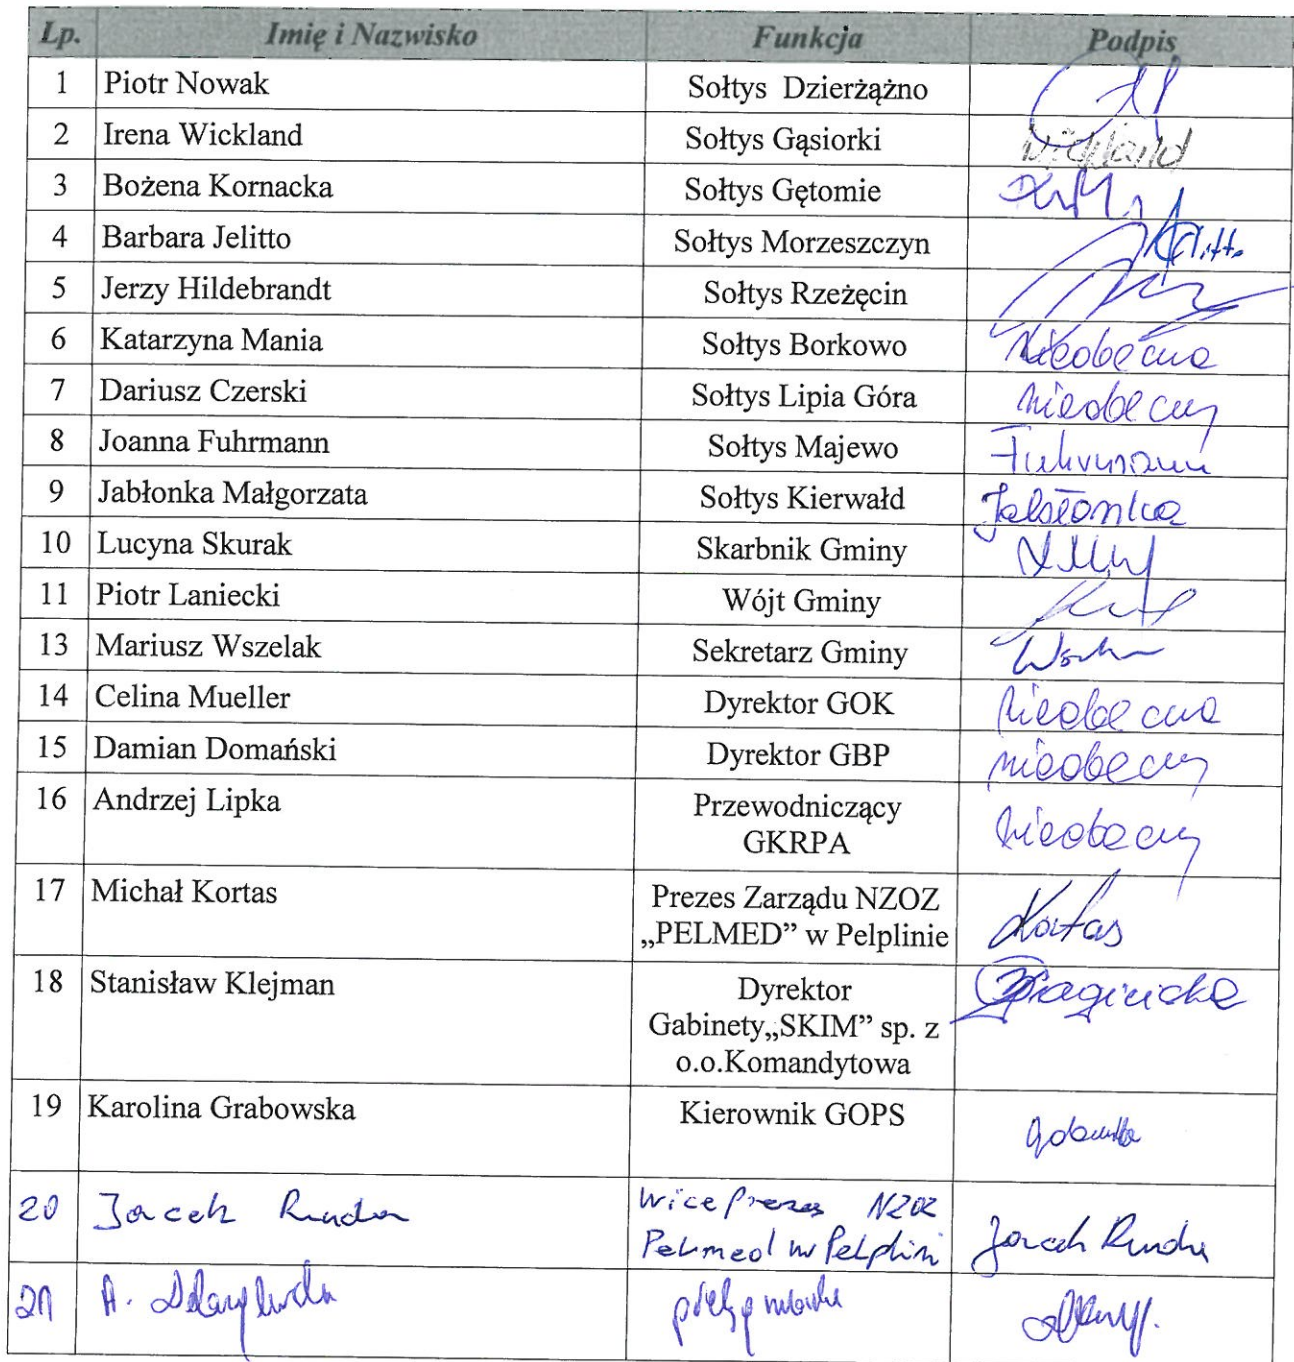 Lp. Imię i Nazwisko Funkcja Podpis
1 Piotr Nowak Sołtys Dzierżążno
2 Irena Wickland Sołtys Gąsiorki Wickland
3 Bożena Kornacka Sołtys Gętomie
4 Barbara Jelitto Sołtys Morzeszczyn
5 Jerzy Hildebrandt Sołtys Rzeżęcin
6 Katarzyna Mania Sołtys Borkowo Nieobecna
7 Dariusz Czerski Sołtys Lipia Góra nieobecny
8 Joanna Fuhrmann Sołtys Majewo Fuhrmann
9 Jabłonka Małgorzata Sołtys Kierwałd Jabłonka
10 Lucyna Skurak Skarbnik Gminy
11 Piotr Laniecki Wójt Gminy
13 Mariusz Wszelak Sekretarz Gminy
14 Celina Mueller Dyrektor GOK nieobecna
15 Damian Domański Dyrektor GBP nieobecny
16 Andrzej Lipka Przewodniczący
GKRPA nieobecny
17 Michał Kortas Prezes Zarządu NZOZ
„PELMED” w Pelplinie Kortas
18 Stanisław Klejman Dyrektor
Gabinety„SKIM” sp. z
o.o.Komandytowa
19 Karolina Grabowska Kierownik GOPS
20 Jacek Ruda Wiceprezes NZOZ
Pelmed w Pelplini Jacek Ruda
21 A. pielęgniarka